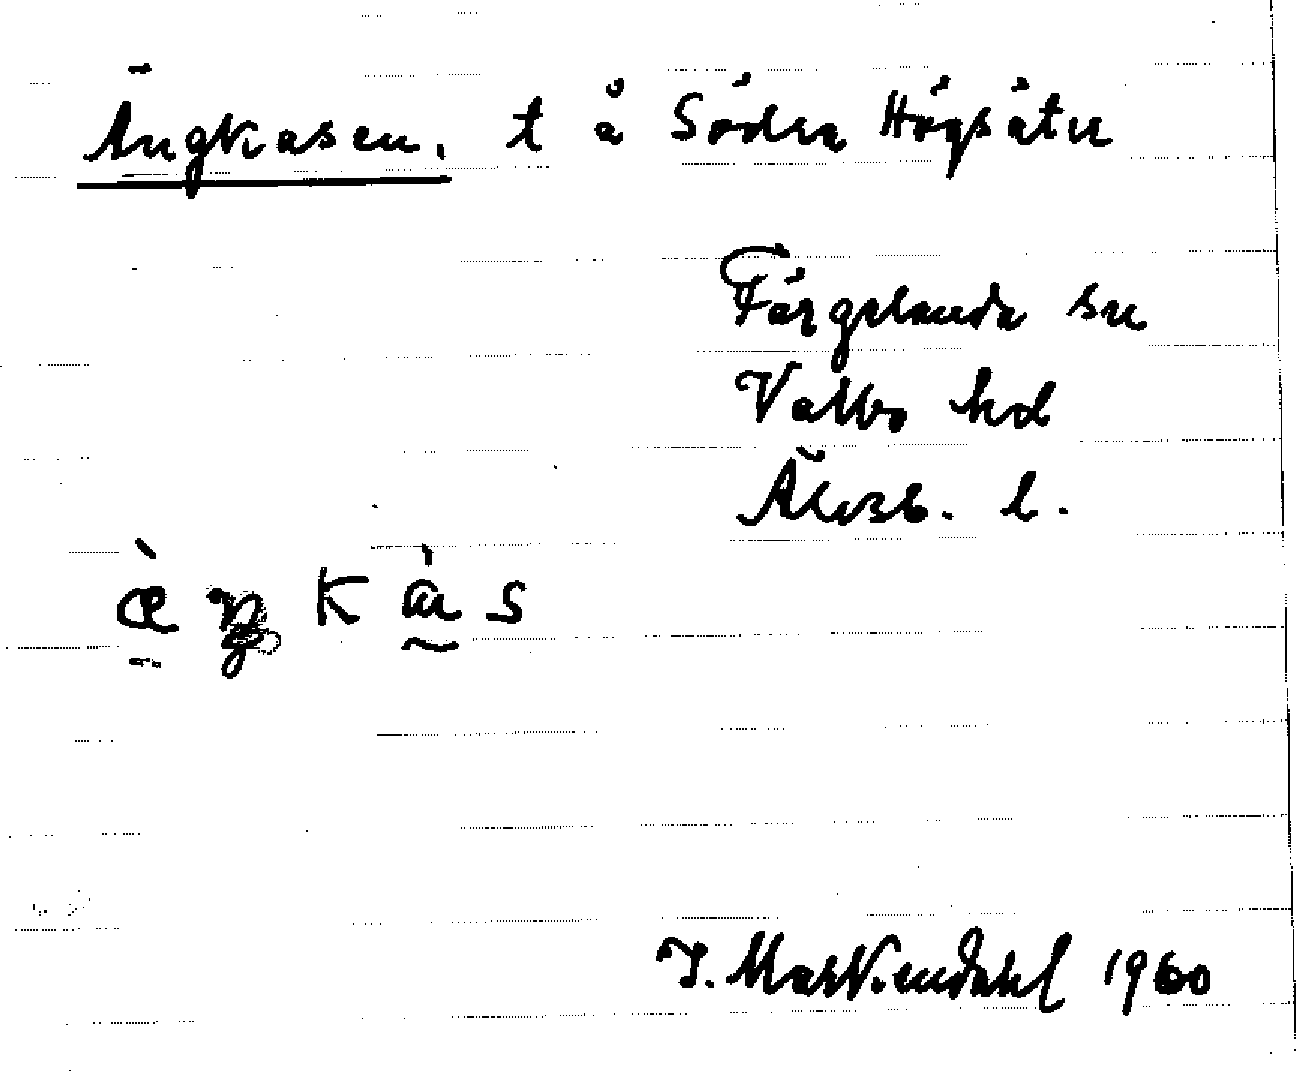 Ängkasen, t å Södra Högsäter
Färgelanda sn
Valbo hd
Älvsb. l.
I. Markendahl 1960